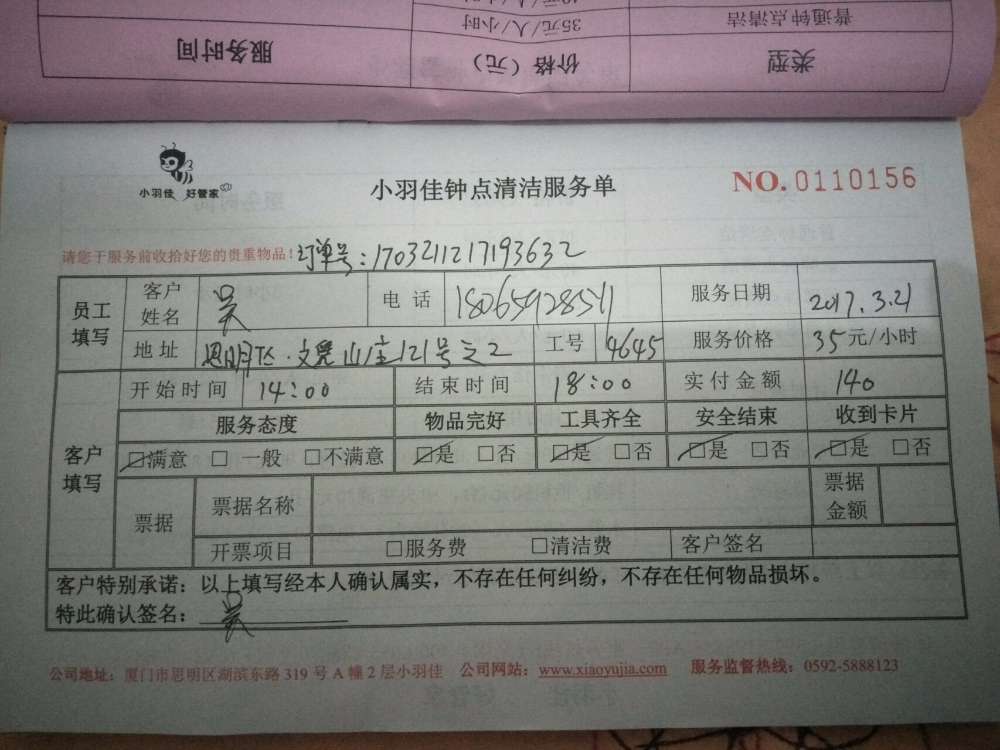 普通钟点清洁 35元/人/小时
类型 价格（元） 服务时间
小羽佳 好管家
小羽佳钟点清洁服务单
NO.0110156
请您于服务前收拾好您的贵重物品！订单号：1703211217193632
员工填写 客户姓名 吴 电话 18065928511 服务日期 2017.3.21
地址 思明区·文兴山庄121号之2 工号 4645 服务价格 35元/小时
客户填写 开始时间 14:00 结束时间 18:00 实付金额 140
服务态度 物品完好 工具齐全 安全结束 收到卡片
☑满意 □ 一般 □不满意 ☑是 □否 ☑是 □否 ☑是 □否 ☑是 □否
票据 票据名称 票据金额
开票项目 □服务费 □清洁费 客户签名
客户特别承诺：以上填写经本人确认属实，不存在任何纠纷，不存在任何物品损坏。
特此确认签名：吴
公司地址：厦门市思明区湖滨东路319号A幢2层小羽佳 公司网站：www.xiaoyujia.com 服务监督热线：0592-5888123